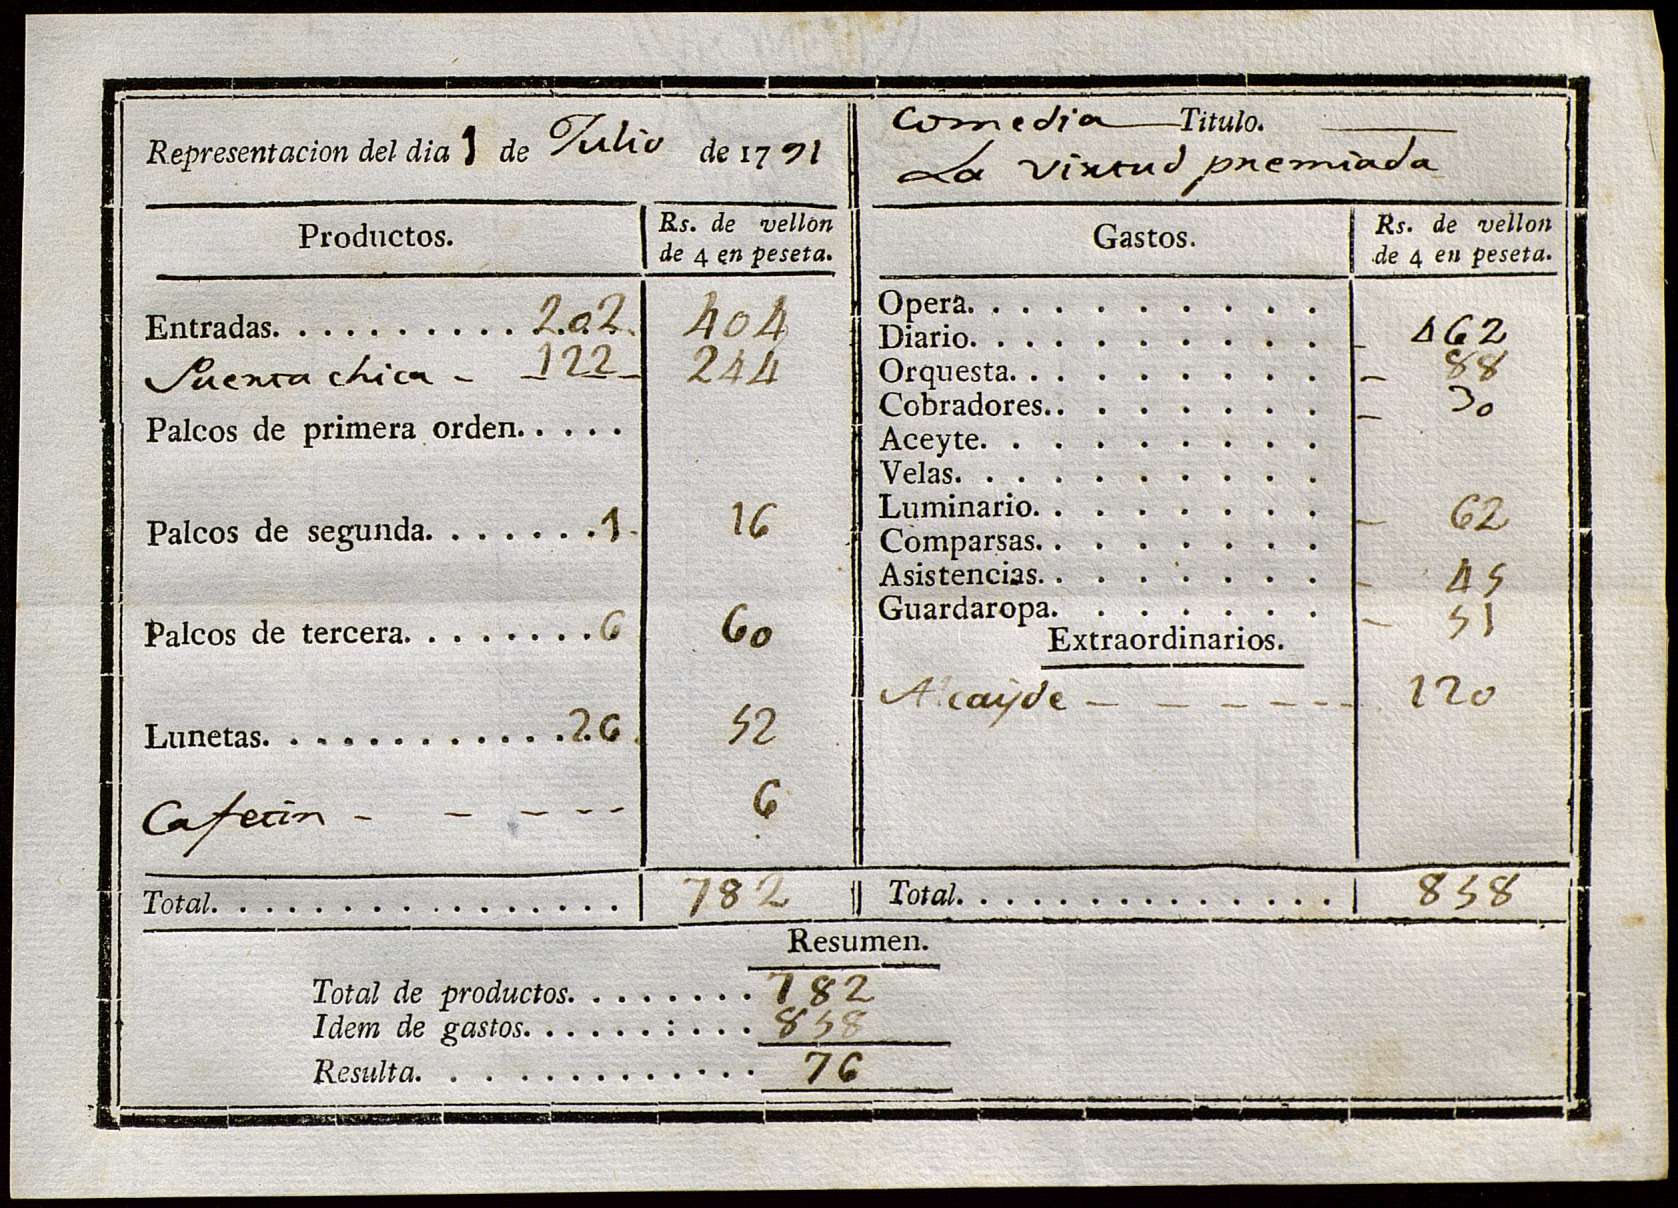 Representacion del dia 1 de Julio de 1791
Comedia Titulo.
La virtud premiada
Productos. Rs. de vellon de 4 en peseta.
Entradas. 202. 404
Puerta chica - 122 244
Palcos de primera orden.
Palcos de segunda. 1 16
Palcos de tercera. 6 60
Lunetas. 26 52
Cafetin - - - - - 6
Total. 782
Gastos. Rs. de vellon de 4 en peseta.
Opera.
Diario. 462
Orquesta. 88
Cobradores. 30
Aceyte.
Velas.
Luminario. 62
Comparsas.
Asistencias. 45
Guardaropa. 51
Extraordinarios.
Alcayde - - - - - 120
Total. 858
Resumen.
Total de productos. 782
Idem de gastos. 858
Resulta. 76